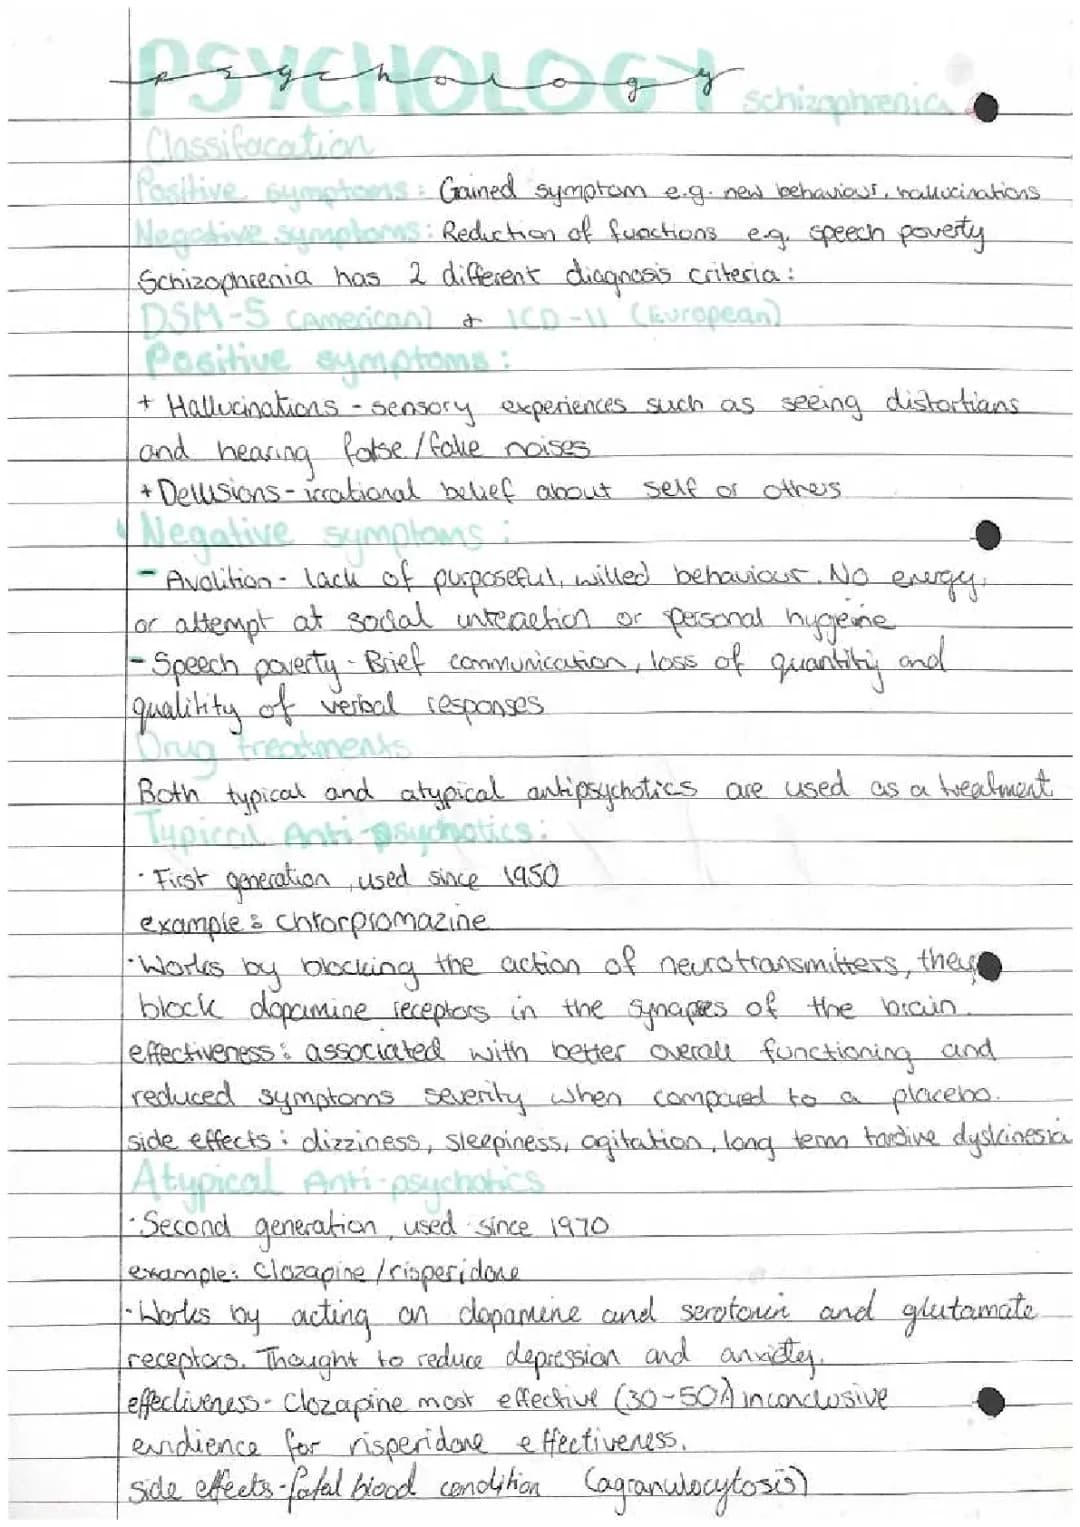 PSYCHOLOGY
psychology
schizophrenia
Classifacation
Positive symptoms: Gained symptom e.g. new behaviour, hallucinations
Negative symptoms: Reduction of functions e.g. speech poverty
Schizophrenia has 2 different diagnosis criteria:
DSM-5 (American) + ICD-11 (European)
Positive symptoms:
+ Hallucinations - sensory experiences such as seeing distortians
and hearing false/fake noises
+ Delusions - irrational belief about self or others
Negative symptoms:
- Avolition - lack of purposeful, willed behaviour. No energy,
or attempt at social interaction or personal hygeine
- Speech poverty - Brief communication, loss of quantitiy and
qualitity of verbal responses
Drug treatments
Both typical and atypical antipsychotics are used as a treatment
Typical Anti-psychotics:
· First generation, used since 1950
example: chlorpromazine
· Works by blocking the action of neurotransmitters, they
block dopamine receptors in the synapses of the brain.
effectiveness: associated with better overall functioning and
reduced symptoms severity when compared to a placebo.
side effects: dizziness, sleepiness, agitation, long term tardive dyskinesia
Atypical Anti-psychotics
· Second generation, used since 1970
example: Clozapine/risperidone
· Works by acting on dopamine and serotonin and glutamate
receptors. Thought to reduce depression and anxiety.
effectiveness - Clozapine most effective (30-50%) inconclusive
evidience for risperidone effectiveness.
side effects - fatal blood condition (agranulocytosis)